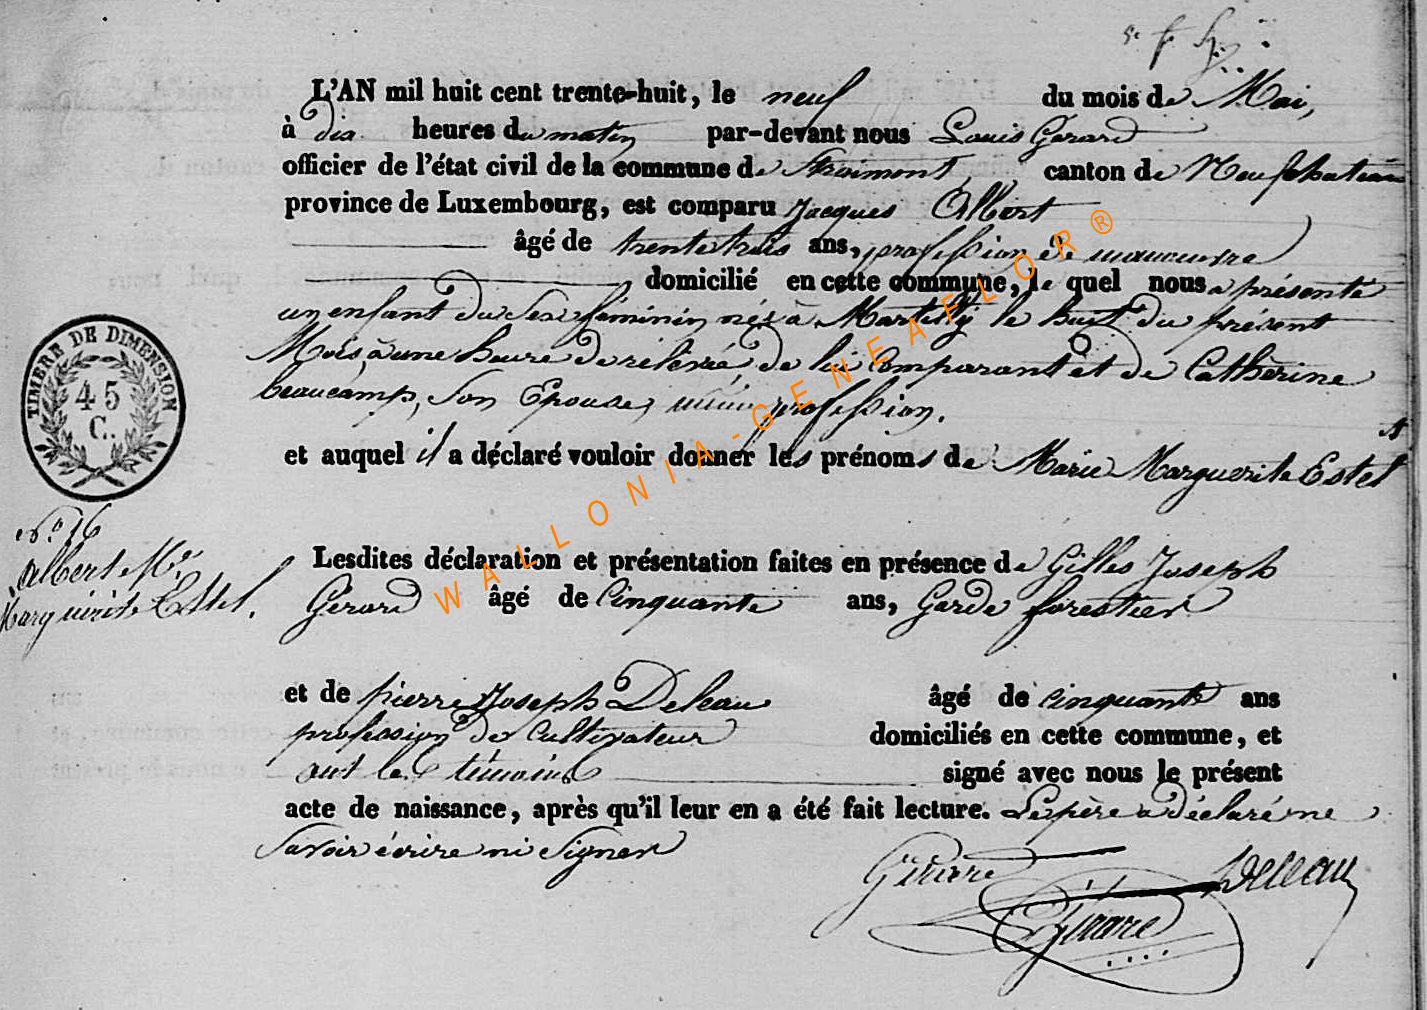 L'AN mil huit cent trente-huit, le neuf du mois de Mai,
à dix heures du matin par-devant nous Louis Gérard
officier de l'état civil de la commune de Straimont, canton de Neufchateau
province de Luxembourg, est comparu Jacques Albert
âgé de trente trois ans, profession de manœuvre
domicilié en cette commune, le quel nous a présenté
un enfant du Sexe féminin née à Martilly le huit du présent
Mois à une heure de relevée, de lui Comparant et de Cathèrine
beaucamp, Son Epouse, même profession.
et auquel il a déclaré vouloir donner les prénoms de Marie Marguerite Estel
Lesdites déclaration et présentation faites en présence de Gilles Joseph
Gérard âgé de Cinquante ans, Garde forestier
et de pierre Joseph Deleau âgé de cinquante ans
profession de Cultivateur domiciliés en cette commune, et
ont les témoins signé avec nous le présent
acte de naissance, après qu'il leur en a été fait lecture. Le père a déclaré ne
Savoir écrire ni Signer
Gérard Deleau
Gérard
TIMBRE DE DIMENSION
45
C.
N.° 16
Albert Me
Marguérite Estel.
WALLONIA-GENEAFLOR®